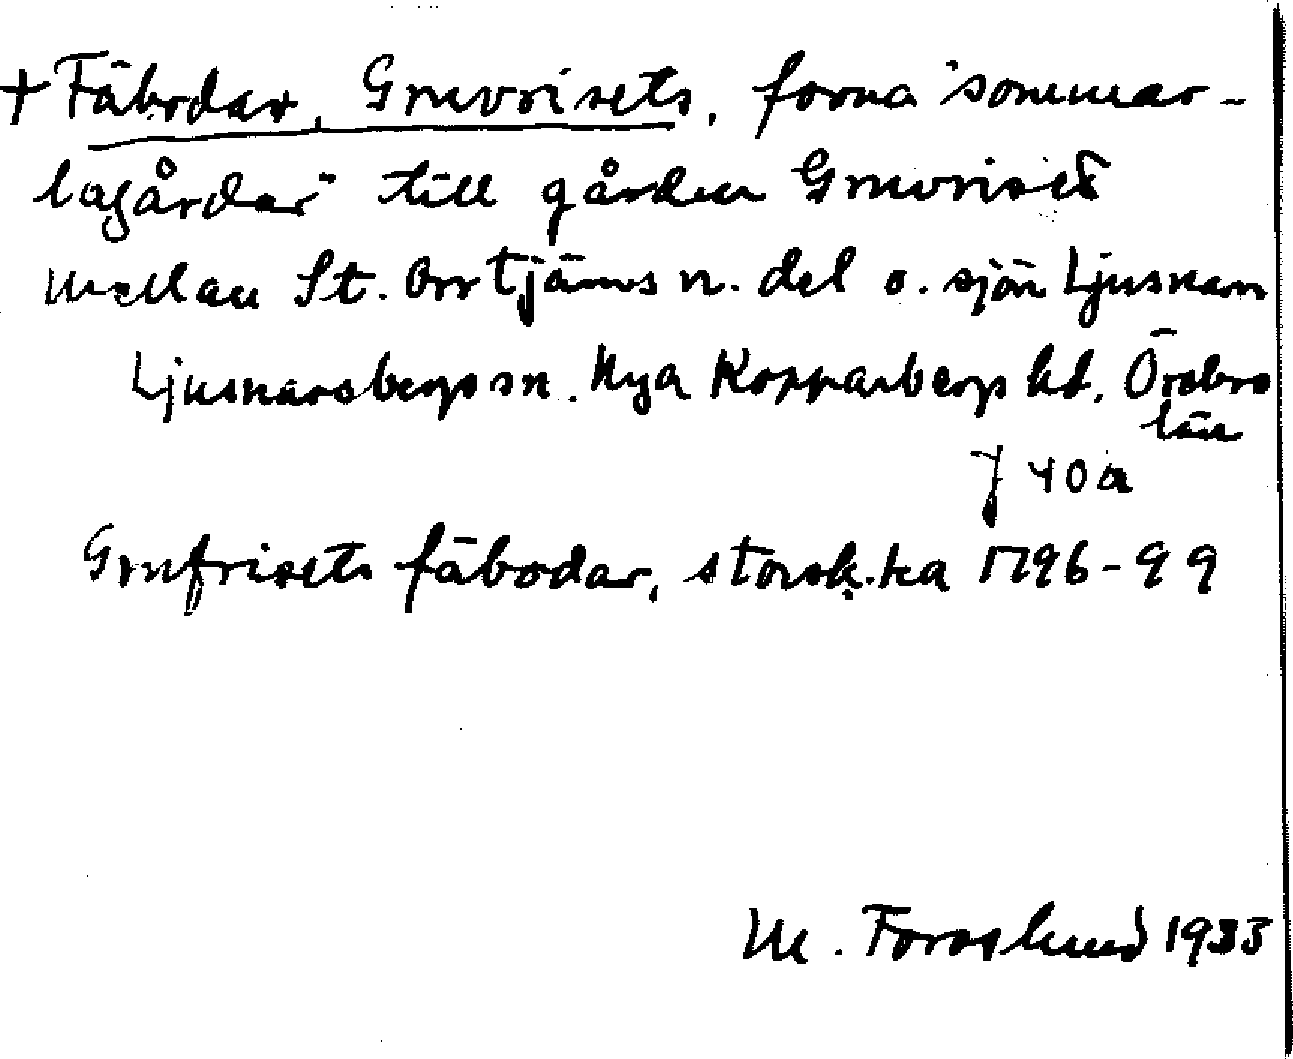 + Fäbodar, Gruvrisets, forna "sommar-
lagårdar" till gården Gruvriset
mellan St. Orrtjärns n. del o. sjön Ljusnaren
Ljusnarsbergs sn. Nya Kopparbergs hd. Örebro
län
J 40a
Grufrisets fäbodar, storsk.ka 1796-99
M. Forslund 1933